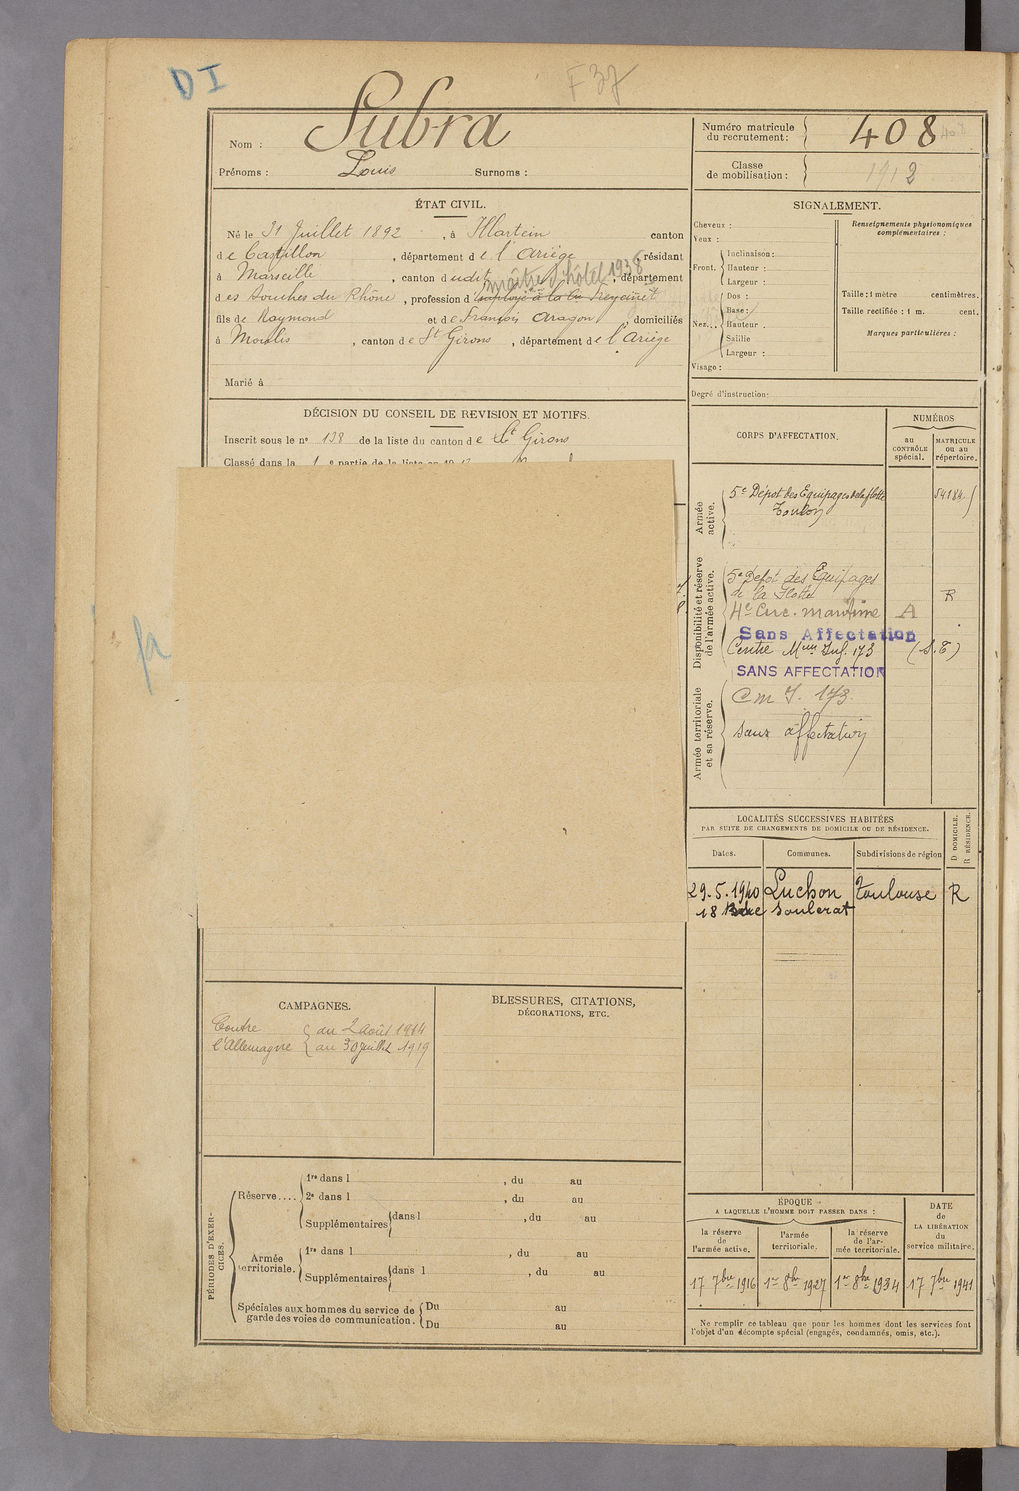 D I
F 37
Nom : Subra
Prénoms : Louis Surnoms :
Numéro matricule du recrutement : 408
Classe de mobilisation : 1912
ÉTAT CIVIL.
Né le 31 Juillet 1892, à Illartein canton
de Castillon, département de l'Ariège, résidant
à Marseille, canton dudit, département
maître d'hôtel 1938
des Bouches du Rhône, profession d'employé à la Cie Freycinet
fils de Raymond et de François Aragon domiciliés
à Moulis, canton de St Girons, département de l'Ariège
Marié à
DÉCISION DU CONSEIL DE REVISION ET MOTIFS.
Inscrit sous le no 138 de la liste du canton de St Girons
Classé dans la 1 e partie de la liste en 19
fa
SIGNALEMENT.
Cheveux :
Yeux :
Front. Inclinaison :
Hauteur :
Largeur :
Nez... Dos :
Base :
Hauteur :
Saillie
Largeur :
Visage :
Renseignements physionomiques complémentaires :
Taille : 1 mètre centimètres.
Taille rectifiée : 1 m. cent.
Marques particulières :
Degré d'instruction :
CORPS D'AFFECTATION.
NUMÉROS
au CONTRÔLE spécial.
MATRICULE ou au répertoire.
Armée active.
5e Dépôt des Equipages de la flotte
Toulon
54184
Disponibilité et réserve de l'armée active.
5e Dépôt des Equipages
de la Flotte R
4e Circ. maritime A
Sans Affectation
Centre Mum Inf. 173 (S.T)
SANS AFFECTATION
Armée territoriale et sa réserve.
C m I. 173
sans affectation
LOCALITÉS SUCCESSIVES HABITÉES
PAR SUITE DE CHANGEMENTS DE DOMICILE OU DE RÉSIDENCE.
Dates. Communes. Subdivisions de région
D DOMICILE.
R RÉSIDENCE.
29.5.1940 Luchon Toulouse R
18
CAMPAGNES.
Contre du 2 août 1914
l'Allemagne au 30 Juillet 1919
BLESSURES, CITATIONS,
DÉCORATIONS, ETC.
PÉRIODES D'EXERCICES.
Réserve....
1re dans l , du au
2e dans l , du au
Supplémentaires dans l , du au
Armée territoriale.
1re dans l , du au
Supplémentaires dans l , du au
Spéciales aux hommes du service de garde des voies de communication.
Du au
Du au
ÉPOQUE
A LAQUELLE L'HOMME DOIT PASSER DANS :
la réserve de l'armée active.
l'armée territoriale.
la réserve de l'armée territoriale.
DATE de LA LIBÉRATION du service militaire.
17 7bre 1916 1er 8bre 1927 1er 8bre 1934 17 7bre 1941
Ne remplir ce tableau que pour les hommes dont les services font
l'objet d'un décompte spécial (engagés, condamnés, omis, etc.).